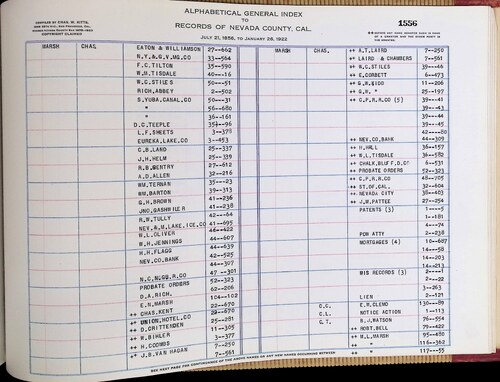 ALPHABETICAL GENERAL INDEX
TO
RECORDS OF NEVADA COUNTY, CAL.
JULY 21, 1856, TO JANUARY 28, 1922
COMPILED BY CHAS. W. KITTS,
COPYRIGHT CLAIMED
1556
MARSH CHAS. EATON & WILLIAMSON 27--662
N.Y.&G.V.MG.CO 33--564
F.C.TILTON 35--590
W.H.TISDALE 40---16
W.C.STILES 50---51
RICH.ABBEY 2--502
S.YUBA.CANAL.CO 50---31
" 56--680
" 36--161
D.C.TEEPLE 35---96
L.F.SHEETS 3--378
EUREKA.LAKE.CO 3--453
C.B.LAND 25--337
J.H.HELM 25--339
R.B.GENTRY 27--612
A.D.ALLEN 32--216
WM.TERNAN 35---23
WM.BARTON 39--313
G.H.BROWN 41--236
JNO.GASHWILER 41--238
R.W.TULLY 42---64
NEV.&M.LAKE.ICE.CO 41--695
W.L.OLIVER 46--422
W.H.JENNINGS 44--607
H.H.FLAGG 44--639
NEV.CO.BANK 42--525
44--307
N.C.NGGR.R.CO 47--301
PROBATE ORDERS 52--323
D.A.RICH. 62--206
E.N.MARSH 104--102
++ CHAS.KENT 22--670
++ UNION.HOTEL.CO 22--670
++ D.CRITTENDEN 25--281
++ M.BIHLER 11--305
++ H.COOMBS 3--377
++ J.B.VAN HAGAN 7--250
7--561
MARSH CHAS. ++ A.T.LAIRD 7--250
++ LAIRD & CHAMBERS 7--561
++ W.C.STILES 39---46
++ E.CORBETT 6--473
++ G.N.KIDD 11--206
++ G.N. " 25--197
++ C.P.R.R.CO (5) 39---41
39---43
39---41
39---44
39---45
42----80
++ NEV.CO.BANK 44--309
++ H.HALL 36--157
++ W.L.TISDALE 36--582
++ CHALK.BLUFF.D.CO 6--531
++ PROBATE ORDERS 52--323
++ C.P.R.R.CO 48--705
++ ST.OF.CAL. 32--604
++ NEVADA CITY 38--403
++ J.M.PATTEE 27--254
PATENTS (3) 1---5
1--181
4---74
POW ATTY 2--238
MORTGAGES (4) 10--687
14---58
14--203
14--213
MIS RECORDS (3) 2----1
2---22
3--263
LIEN 2--121
C.C. E.W.CLEMO 130---89
C.L. NOTICE ACTION 1--113
C.T. B.J.WATSON 76--554
++ ROBT.BELL 79--422
++ M.L.MARSH 95--480
++ " 116--362
++ " 117---55
SEE NEXT PAGE FOR CONTINUATION OF THE ABOVE NAMES OR ANY NEW NAMES OCCURRING BETWEEN